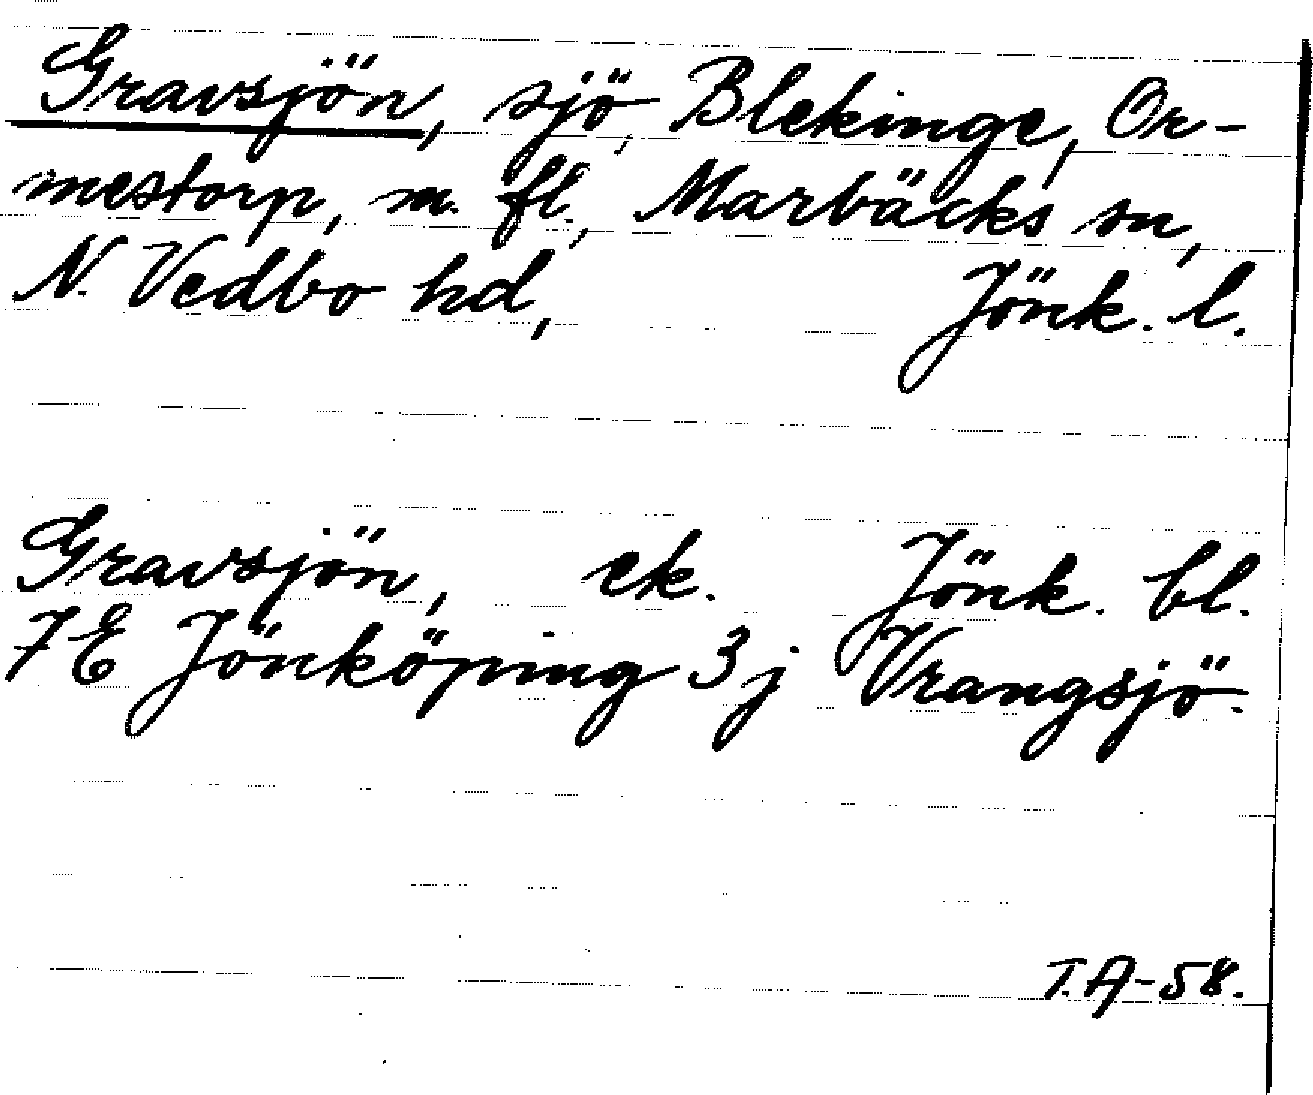 Gravsjön, sjö, Blekinge, Or-
mestorp, m. fl., Marbäcks sn,
N. Vedbo hd, Jönk. l.
Gravsjön, ek. Jönk. bl.
7E Jönköping 3j Vrangsjö.
T.A-58.